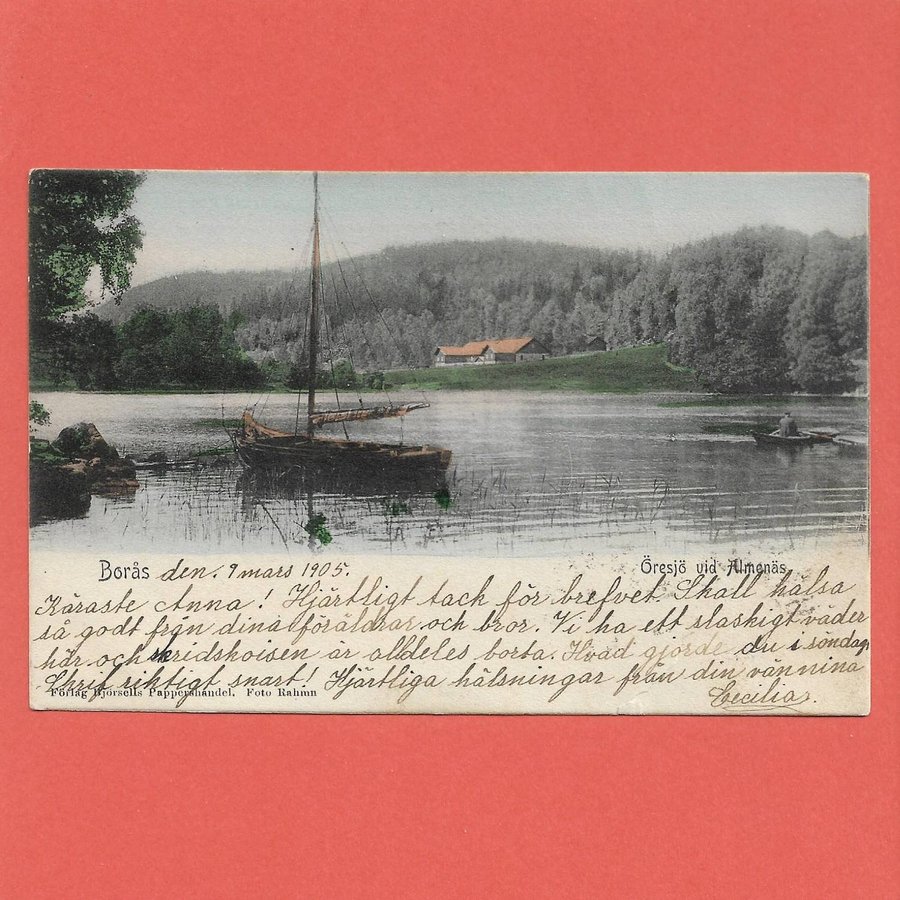 Borås den. 9 mars 1905.
Öresjö vid Almenäs.
Käraste Anna! Hjärtligt tack för brefvet. Skall hälsa
så godt från dina föräldrar och bror. Vi ha ett slaskigt väder
här och skridskoisen är alldeles borta. Hvad gjorde du i söndag,
Skrif riktigt snart! Hjärtliga hälsningar från din vännina
Cecilia.
Förlag Björsells Pappershandel. Foto Rahmn